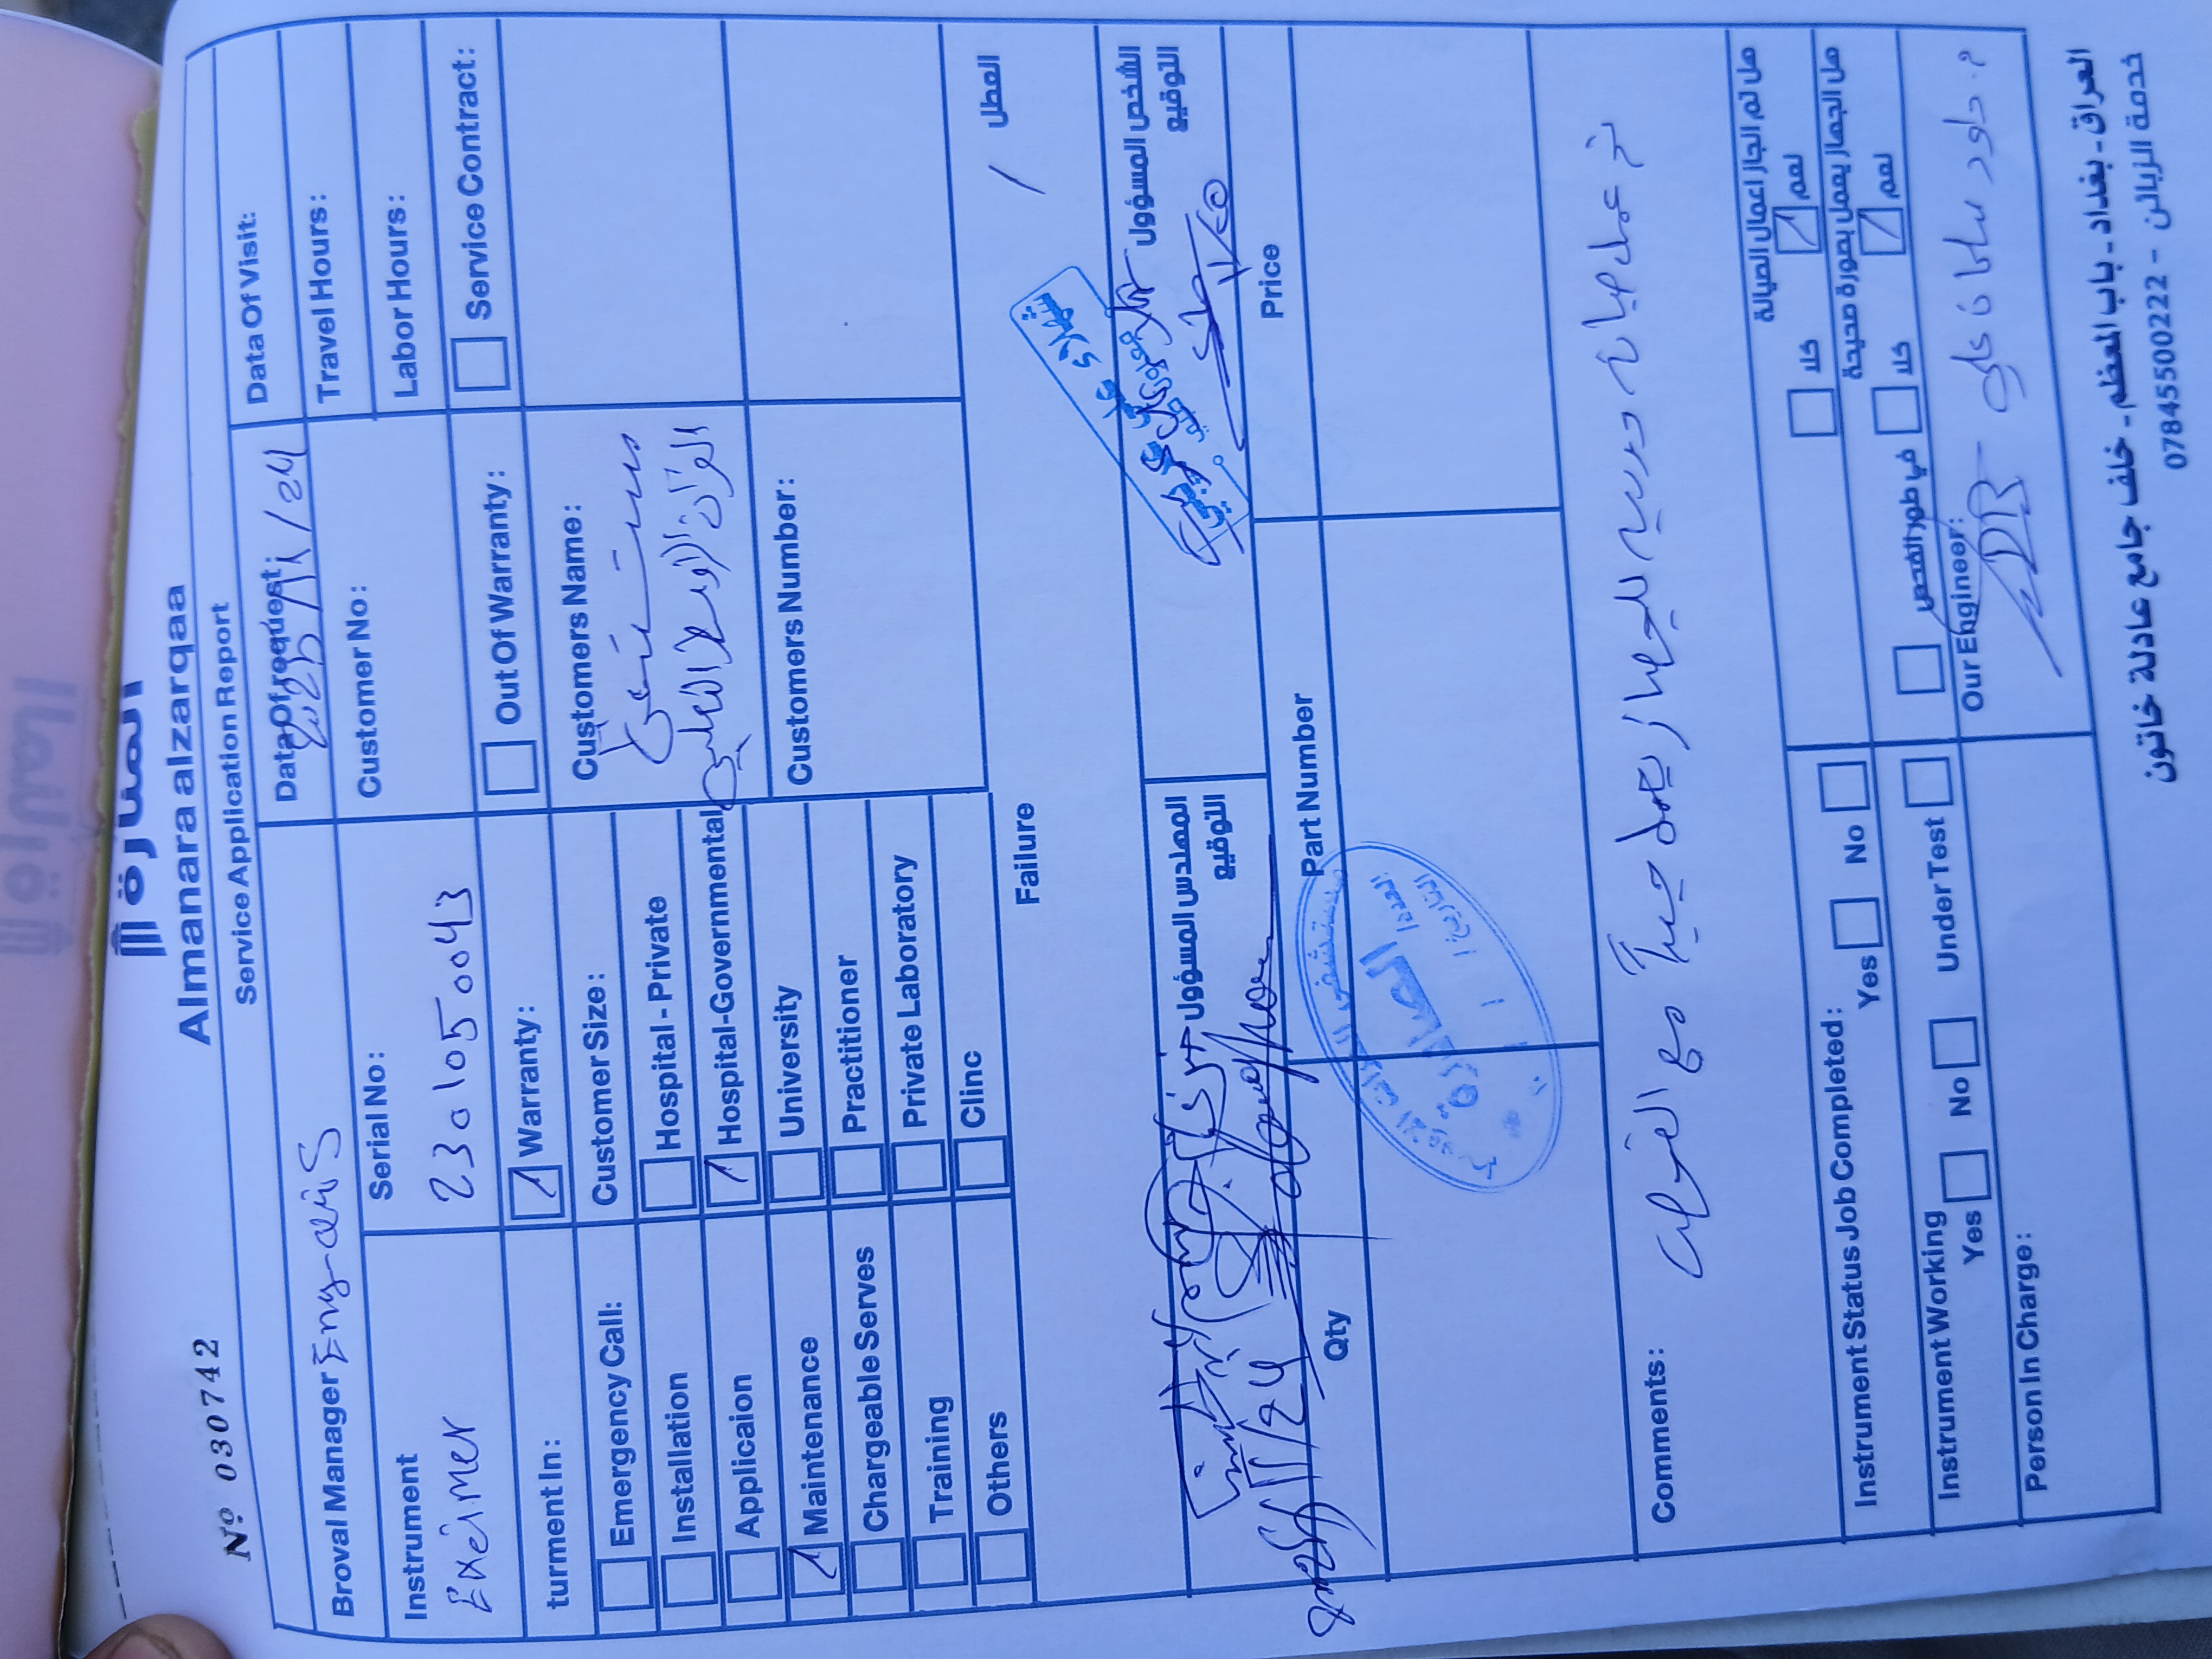 Nº 030742
المنارة
Almanara alzarqaa
Service Application Report
Broval Manager Eng-
Data Of request:
2025/11/24
Data Of Visit:
Instrument
Exeimer
Serial No:
2301050043
Customer No:
Travel Hours:
Labor Hours:
turment In:
Warranty:
Out Of Warranty:
Service Contract:
Emergency Call:
Installation
Applicaion
Maintenance
Chargeable Serves
Training
Others
Customer Size:
Hospital - Private
Hospital-Governmental
University
Practitioner
Private Laboratory
Clinc
Customers Name:
مستشفى
الفرات الاوسط التعليمي
Customers Number:
Failure
العطل
/
المهندس المسؤول
التوقيع
2025/11/24
الشخص المسؤول
التوقيع
Qty
Part Number
Price
Comments:
تم عمل صيانة دورية للجهاز يعمل جيداً مع
Instrument Status Job Completed:
Yes
No
هل لم الجاز اعمال الصيالة
لعم
كلا
Instrument Working
Yes
No
Under Test
هل الجهاز يعمل بصورة صحيحة
لعم
كلا
في طور الفحص
Person In Charge:
Our Engineer:
العراق - بغداد - باب المعظم - خلف جامع عادلة خاتون
خدمة الزبالن - 07845500222